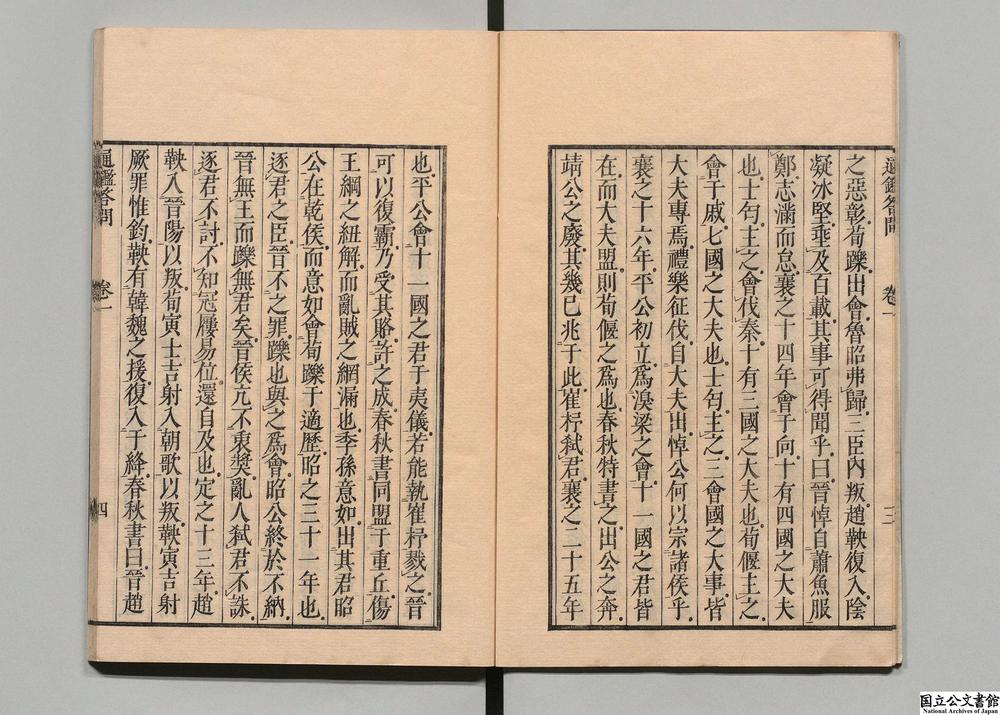 通鑑答問 卷一 三
之惡彰荀躒出會魯昭弗歸三臣內叛趙鞅復入陰
凝冰堅垂及百載其事可得聞乎曰晉悼自蕭魚服
鄭志滿而怠襄之十四年會于向十有四國之大夫
也士匄主之會伐秦十有三國之大夫也荀偃主之
會于戚七國之大夫也士匄主之三會國之大事皆
大夫專焉禮樂征伐自大夫出悼公何以宗諸侯乎
襄之十六年平公初立爲湨梁之會十一國之君皆
在而大夫盟則荀偃之爲也春秋特書之出公之奔
靖公之廢其幾已兆于此崔杼弑君襄之二十五年
也平公會十一國之君于夷儀若能執崔杼戮之晉
可以復霸乃受其賂許之成春秋書同盟于重丘傷
王綱之紐解而亂賊之網漏也季孫意如出其君昭
公在乾侯而意如會荀躒于適歷昭之三十一年也
逐君之臣晉不之罪躒也與之爲會昭公終於不納
晉無王而躒無君矣晉侯亢不衷奬亂人弑君不誅
逐君不討不知冠屨易位還自及也定之十三年趙
鞅入晉陽以叛荀寅士吉射入朝歌以叛鞅寅吉射
厥罪惟鈞鞅有韓魏之援復入于絳春秋書曰晉趙
通鑑答問 卷一 四
国立公文書館
National Archives of Japan